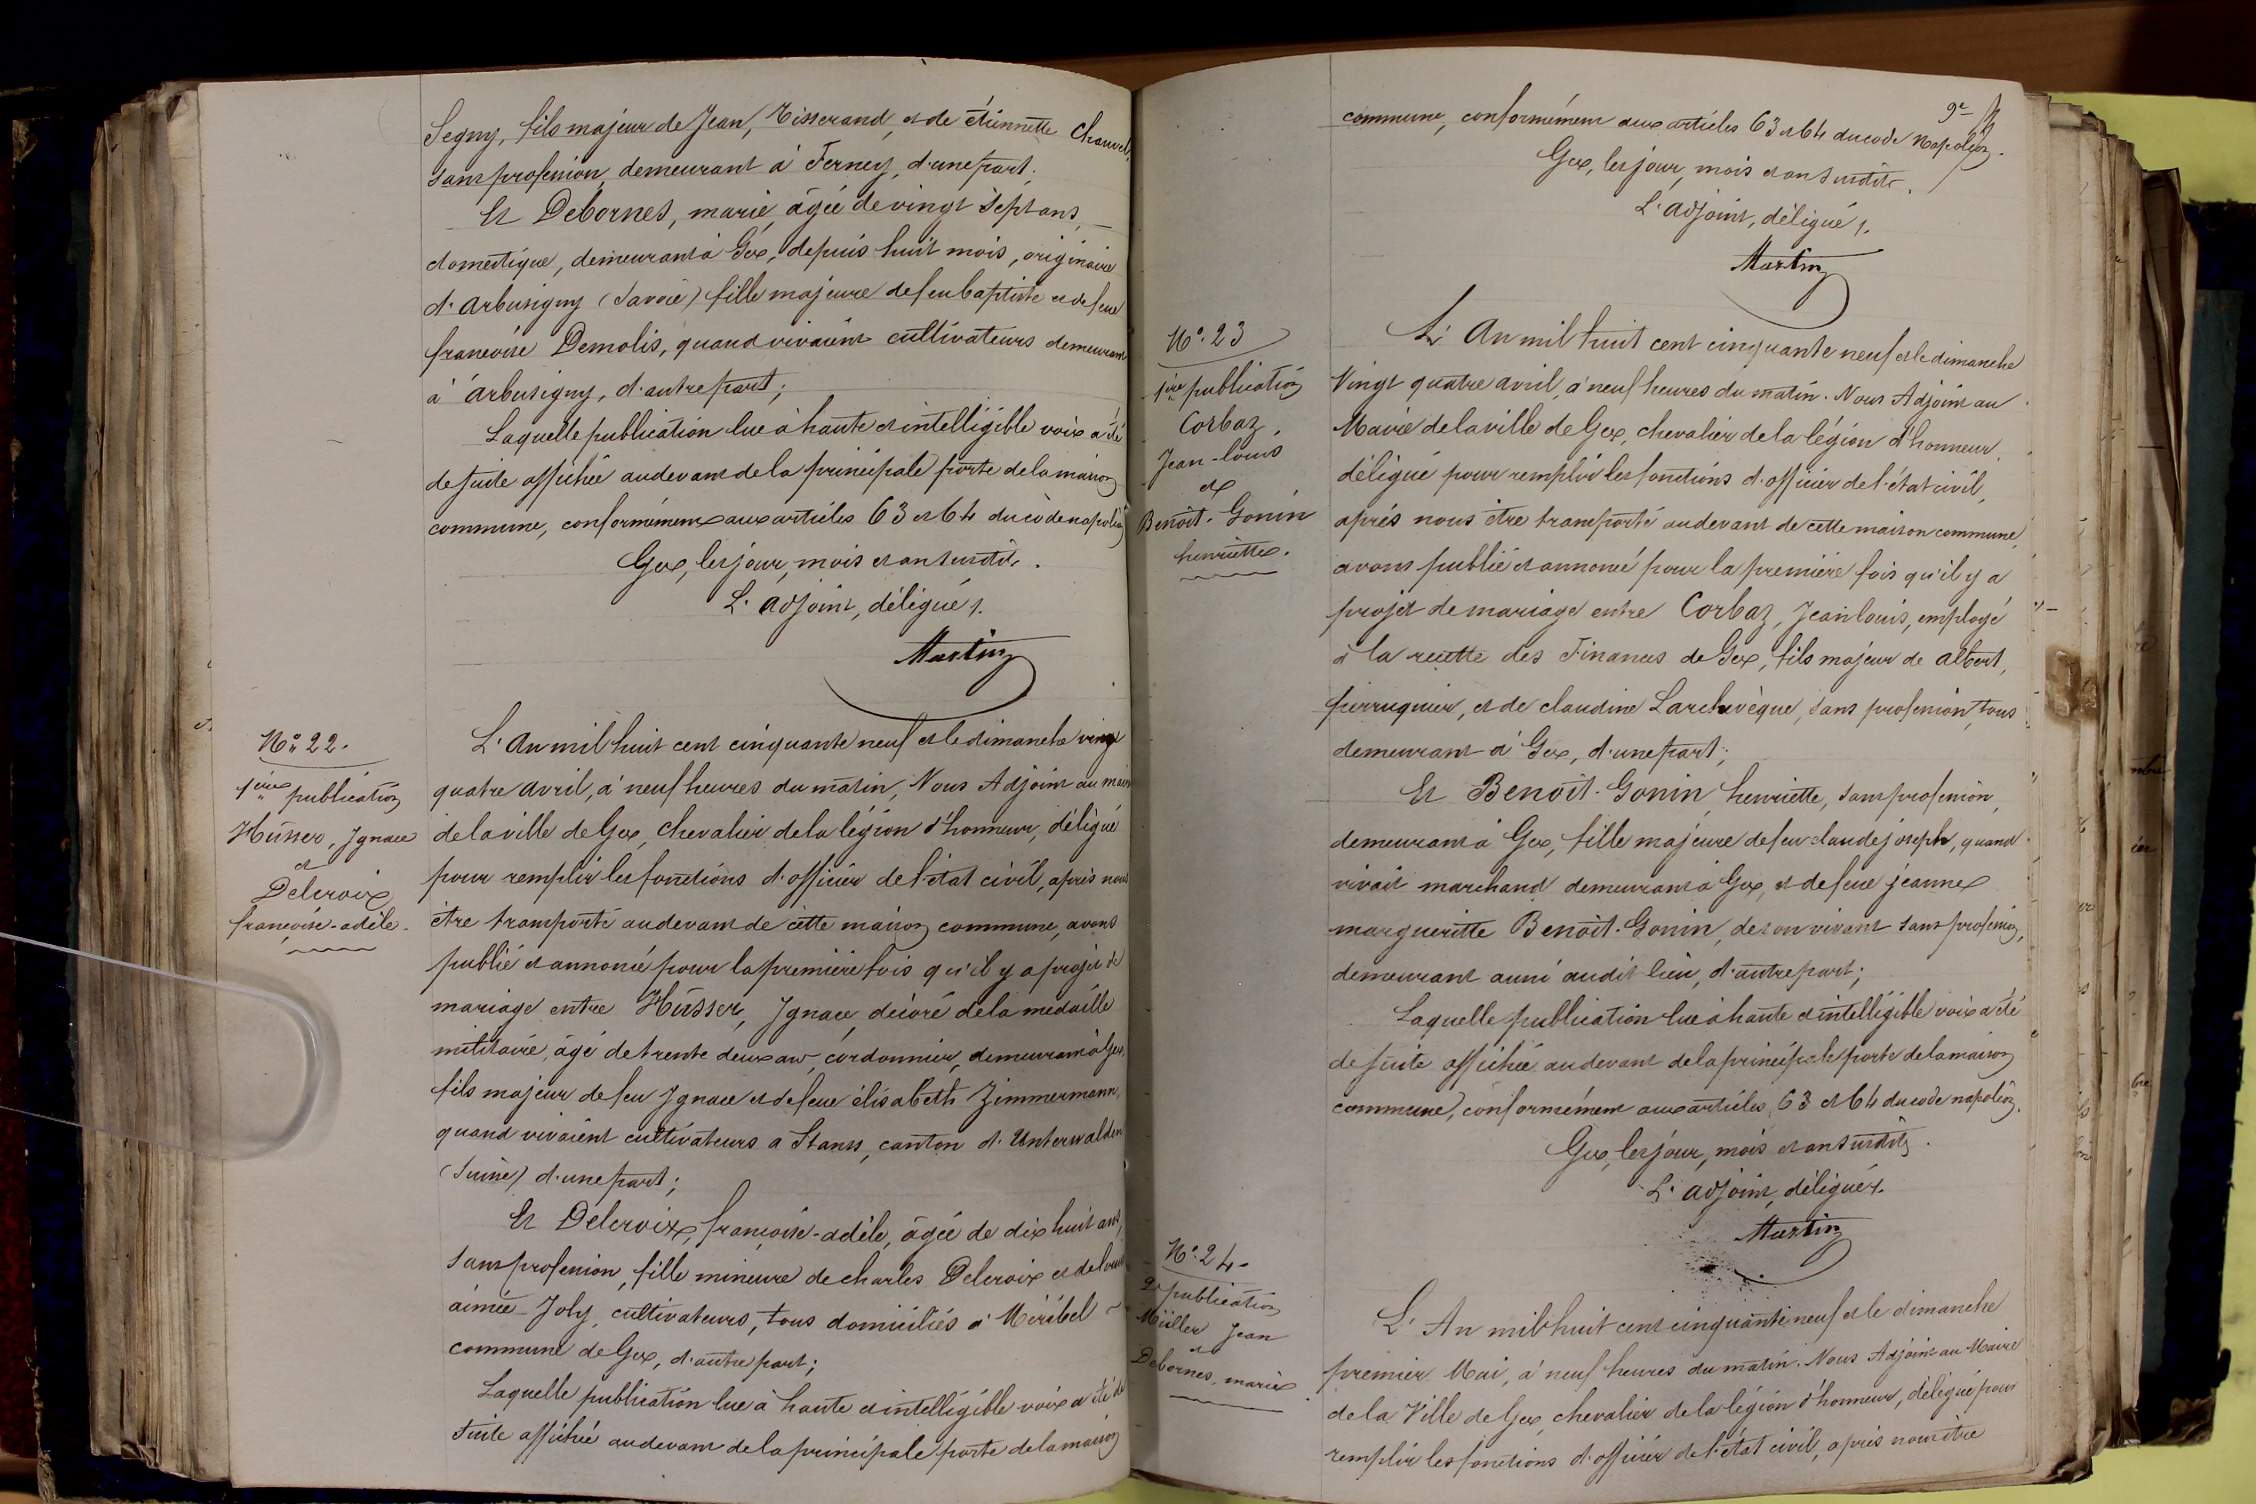 Segny, fils majeur de Jean, Tisserand, et de étiennette Chauvet,
sans profession, demeurant à Ferney, d'une part;
Et Debornes, marie, âgée de vingt sept ans,
domestique, demeurant à Gex, depuis huit mois, originaire
d'arbusigny (Savoie) fille majeure de feu baptiste et de feue
francoise Demolis, quand vivaient cultivateurs demeurant
à arbusigny, d'autre part;
Laquelle publication lue à haute et intelligible voix a été
de suite affichée au devant de la principale porte de la maison
commune, conformément aux articles 63 et 64 du code napoléon
Gex, les jour, mois et an susdits.
L'adjoint, délégué,
Martin
No. 22.
1ière publication
Hüsser, Ignace
et
Delcroix
françoise-adèle.
L'An mil huit cent cinquante neuf et le dimanche vingt
quatre avril, à neuf heures du matin, Nous Adjoint au maire
de la ville de Gex, chevalier de la légion d'honneur, délégué
pour remplir les fonctions d'officier de l'état civil, après nous
être transporté au devant de cette maison commune, avons
publié et annoncé pour la première fois qu'il y a projet de
mariage entre Hüsser, Ignace, décoré de la medaille
militaire, âgé de trente deux ans, cordonnier, demeurant à Gex,
fils majeur de feu Ignace et de feue élisabeth Zimmermann,
quand vivaient cultivateurs a Stanss, canton d'Unterwalden
(Suisse) d'une part;
Et Delcroix, françoise-adèle, âgée de dix huit ans,
sans profession, fille mineure de charles Delcroix et de
aimée Joly, cultivateurs, tous domiciliés à Miribel
commune de Gex, d'autre part;
Laquelle publication lue à haute et intelligible voix a été de
suite affichée au devant de la principale porte de la maison
9e
commune, conformément aux articles 63 et 64 du code Napoléon.
Gex, les jour, mois et an susdits.
L'adjoint, délégué,
Martin
No. 23
1ière publication
Corbaz,
Jean-louis
et
Benoît-Gonin
henriette.
L'An mil huit cent cinquante neuf et le dimanche
Vingt quatre avril, à neuf heures du matin. Nous Adjoint au
Maire de la ville de Gex, chevalier de la légion d'honneur,
délégué pour remplir les fonctions d'officier de l'état civil,
après nous être transporté au devant de cette maison commune,
avons publié et annoncé pour la première fois qu'il y a
projet de mariage entre Corbaz, Jean louis, employé
à la recette des Finances de Gex, fils majeur de albert,
perruquier, et de claudine Larchevèque, sans profession, tous
demeurant à Gex, d'une part;
Et Benoît-Gonin, henriette, sans profession,
demeurant à Gex, fille majeure de feu claude joseph, quand
vivait marchand demeurant à Gex, et de feue jeanne
margueritte Benoît-Gonin, de son vivant sans profession,
demeurant aussi audit lieu, d'autre part;
Laquelle publication lue à haute et intelligible voix a été
de suite affichée au devant de la principale porte de la maison
commune, conformément aux articles 63 et 64 du code napoléon.
Gex, les jour, mois et an susdits.
L'adjoint, délégué,
Martin
No. 24.
2e publication
Müller Jean
et
Debornes, marie
L'An mil huit cent cinquante neuf et le dimanche
premier Mai, à neuf heures du matin. Nous Adjoint au Maire
de la Ville de Gex, chevalier de la légion d'honneur, délégué pour
remplir les fonctions d'officier de l'état civil, après nous être